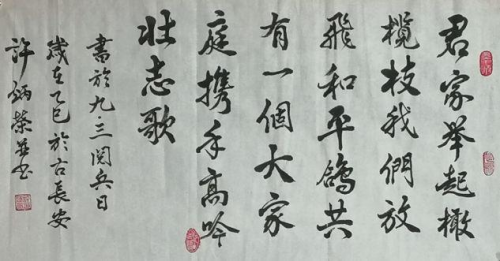 君家举起橄
榄枝我們放
飛和平鴿共
有一個大家
庭携手高吟
壮志歌
書於九三阅兵日
歲在乙巳於古長安
许炳荣並书